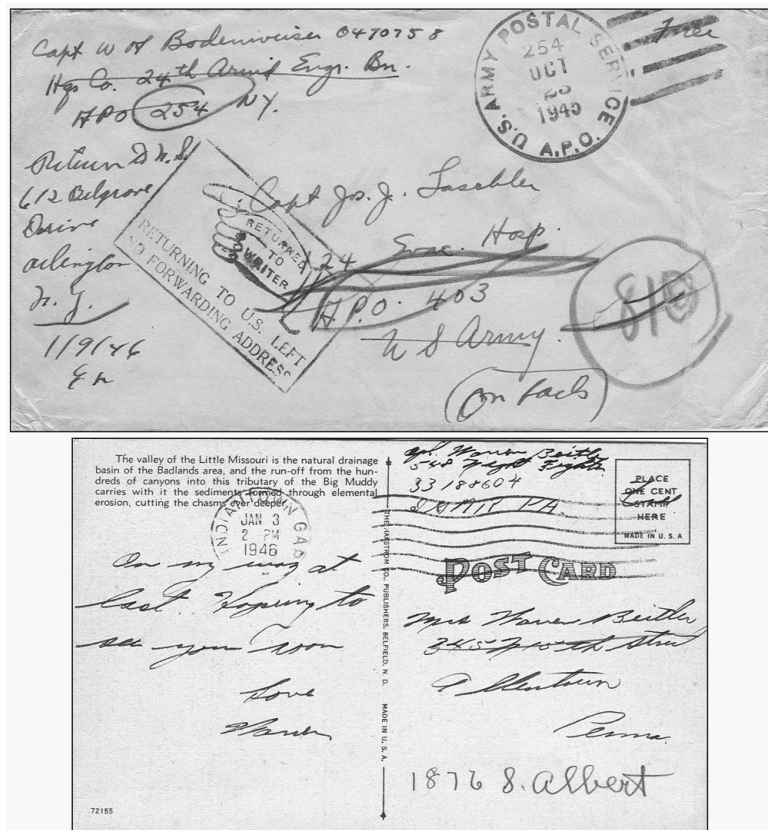 Capt W H Bodenweiser 0470758
Hqs Co. 24th Arm'd Engr. Bn.
APO 254 NY.
Free
U.S. ARMY POSTAL SERVICE
254
OCT
1945
A.P.O.
Return
612 Belgrove
Drive
Arlington
N. J.
1/9/46
RETURNED
TO
WRITER
RETURNING TO U.S. LEFT
NO FORWARDING ADDRESS
Capt Jos. J.
124 Evac. Hosp.
A.P.O. 403
U S Army.
810
The valley of the Little Missouri is the natural drainage
basin of the Badlands area, and the run-off from the hun-
dreds of canyons into this tributary of the Big Muddy
carries with it the sediments formed through elemental
erosion, cutting the chasms ever deeper.
INDIANTOWN GAP
JAN 3
2 PM
1946
On my way at
last. Hoping to
see you soon
Love
Warren
72155
THE HAFSTROM CO., PUBLISHERS, BELFIELD, N. D. MADE IN U. S. A.
Warren Beitler
548 Night Fighter
33188604
PA.
PLACE
ONE CENT
STAMP
HERE
MADE IN U. S. A
POST CARD
Mrs Warren Beitler
345 N 15th Street
Allentown
Penna.
1876 S. Albert